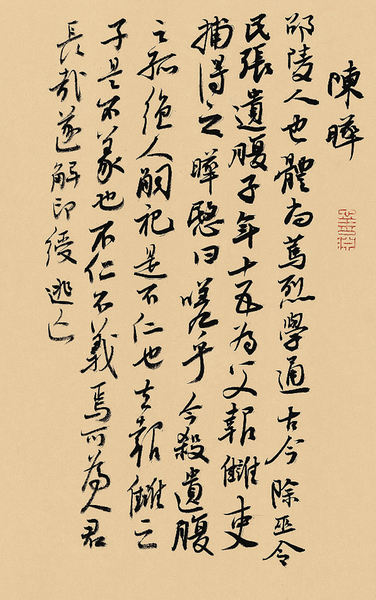 陳曄
邵陵人也體尚篤烈學通古今除巫令
民張遺腹子年十五為父報讎吏
捕得之曄愍曰嗟乎今殺遺腹
之孤絕人嗣祀是不仁也報讎之
子是不義也不仁不義焉可為人君
長哉遂解印綬逃亡